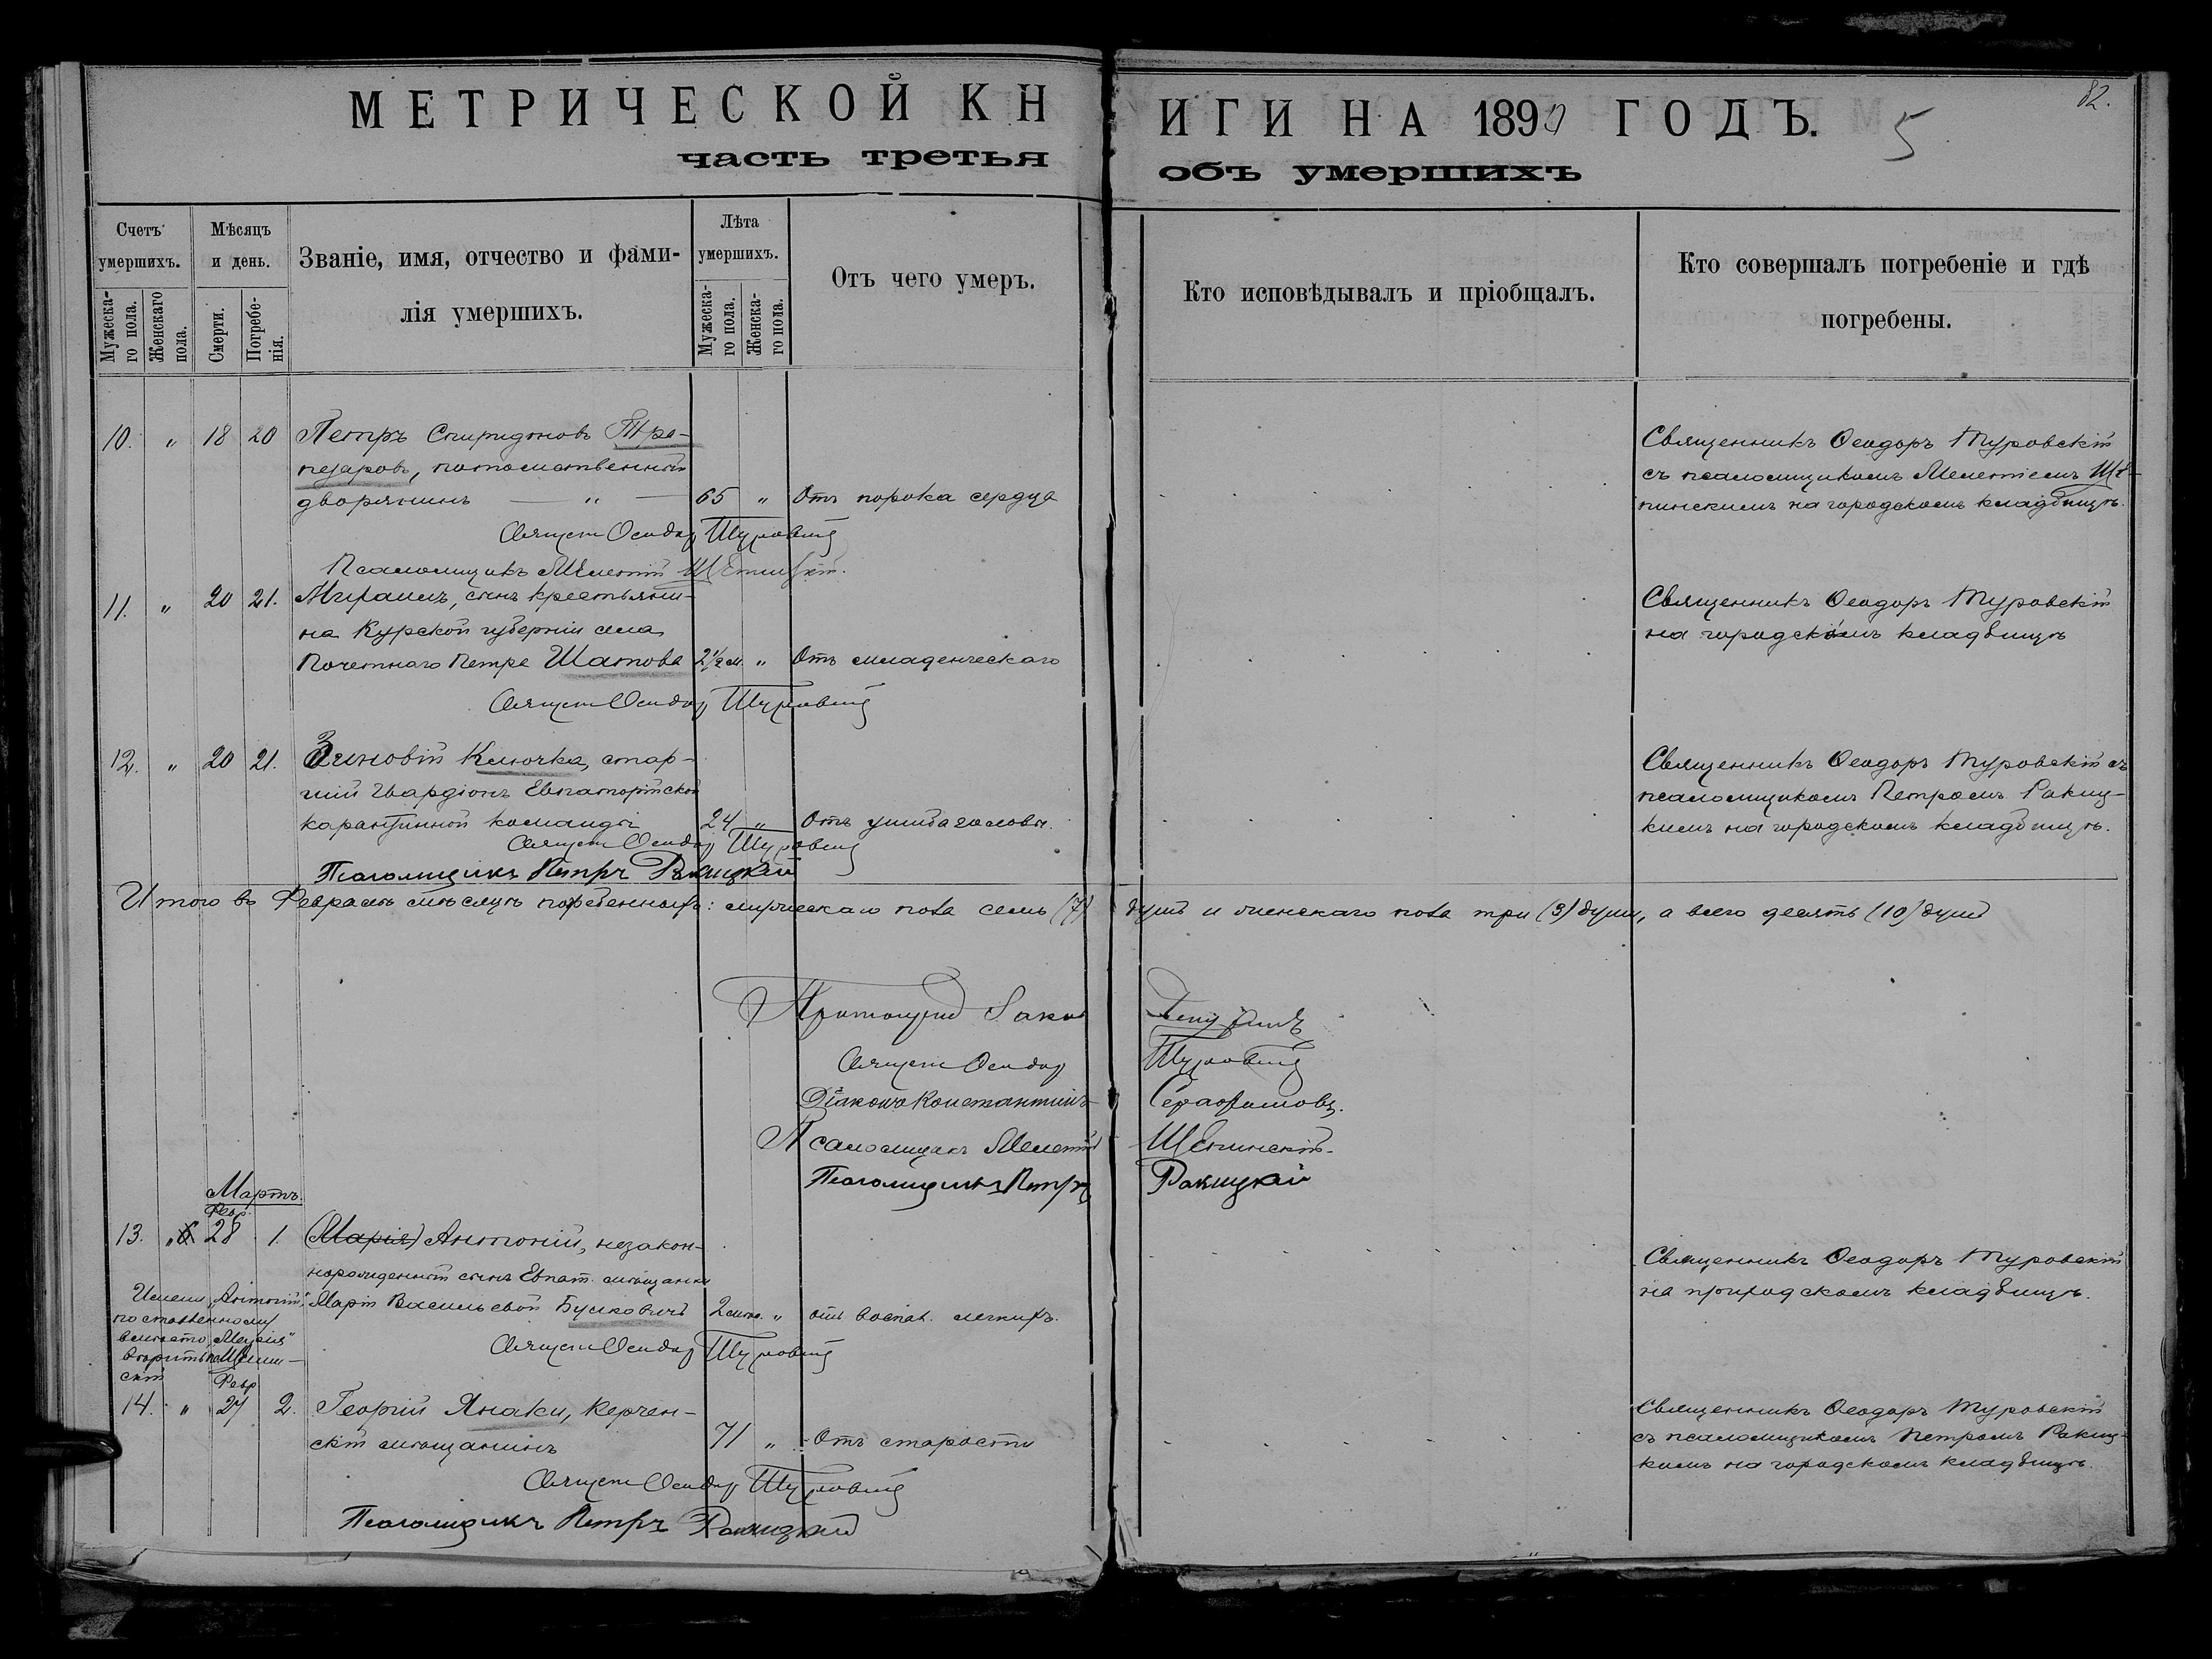 МЕТРИЧЕСКОЙ КНИГИ НА 1890 ГОДЪ.
82.
5
часть третья объ умершихъ
Счетъ умершихъ.
Мужеска-го пола.
Женскаго пола.
Мѣсяцъ и день.
Смерти.
Погребе-нія.
Званіе, имя, отчество и фами-
лія умершихъ.
Лѣта умершихъ.
Мужеска-го пола.
Женска-го пола.
Отъ чего умеръ.
Кто исповѣдывалъ и пріобщалъ.
Кто совершалъ погребеніе и гдѣ
погребены.
10. " 18 20 Петръ Спиридоновъ Тра-
пезаровъ, потомственный
дворянинъ — " — 65 " Отъ порока сердца
Священникъ Ѳеодоръ Туровскій
съ псаломщикомъ Мелетіемъ Щѣ-
пинскимъ на городскомъ кладбищѣ.
Священ Ѳеодор Туровскій
Псаломщикъ Мелетій Щепинскій.
11. " 20 21. Михаилъ, сынъ крестьяни-
на Курской губерніи села
Почетнаго Петра Шатова 2½ м. " Отъ младенческаго
Священникъ Ѳеодоръ Туровскій
на городскомъ кладбищѣ
Священ Ѳеодор Туровскій
12. " 20 21. Зиновій Ключка, стар-
шій гвардіонъ Евпаторійской
карантинной команды 24 " Отъ ушиба головы.
Священникъ Ѳеодоръ Туровскій съ
псаломщикомъ Петромъ Ракиц-
кимъ на городскомъ кладбищѣ.
Священ Ѳеодор Туровскій
Псаломщикъ Петръ Ракицкій
Итого въ Февралѣ мѣсяцѣ погребенныхъ: мужескаго пола семь (7) душъ и женскаго пола три (3) души, а всего десять (10) душъ
Протоиерей Іаков
Священ Ѳеодор Туровскій
Діаконъ Константинъ Серафимовъ.
Псаломщикъ Мелетій Щепинскій.
Псаломщикъ Петръ Ракицкій
Мартъ.
Февр.
13. " 28 1. (Марія) Антоній, незакон-
норожденный сынъ Евпат. мѣщанки
Маріи Васильевой Бушковичъ 2 мѣс. " отъ воспал. легкихъ.
Священникъ Ѳеодоръ Туровскій
на городскомъ кладбищѣ.
Имени "Антоній",
поставленному
вмѣсто "Марія"
вѣрить
Священ Ѳеодор Туровскій
Февр
14. " 27 2. Георгій Янаки, Керчен-
скій мѣщанинъ 71 " Отъ старости
Священникъ Ѳеодоръ Туровскій
съ псаломщикомъ Петромъ Ракиц-
кимъ на городскомъ кладбищѣ.
Священ Ѳеодор Туровскій
Псаломщикъ Петръ Ракицкій